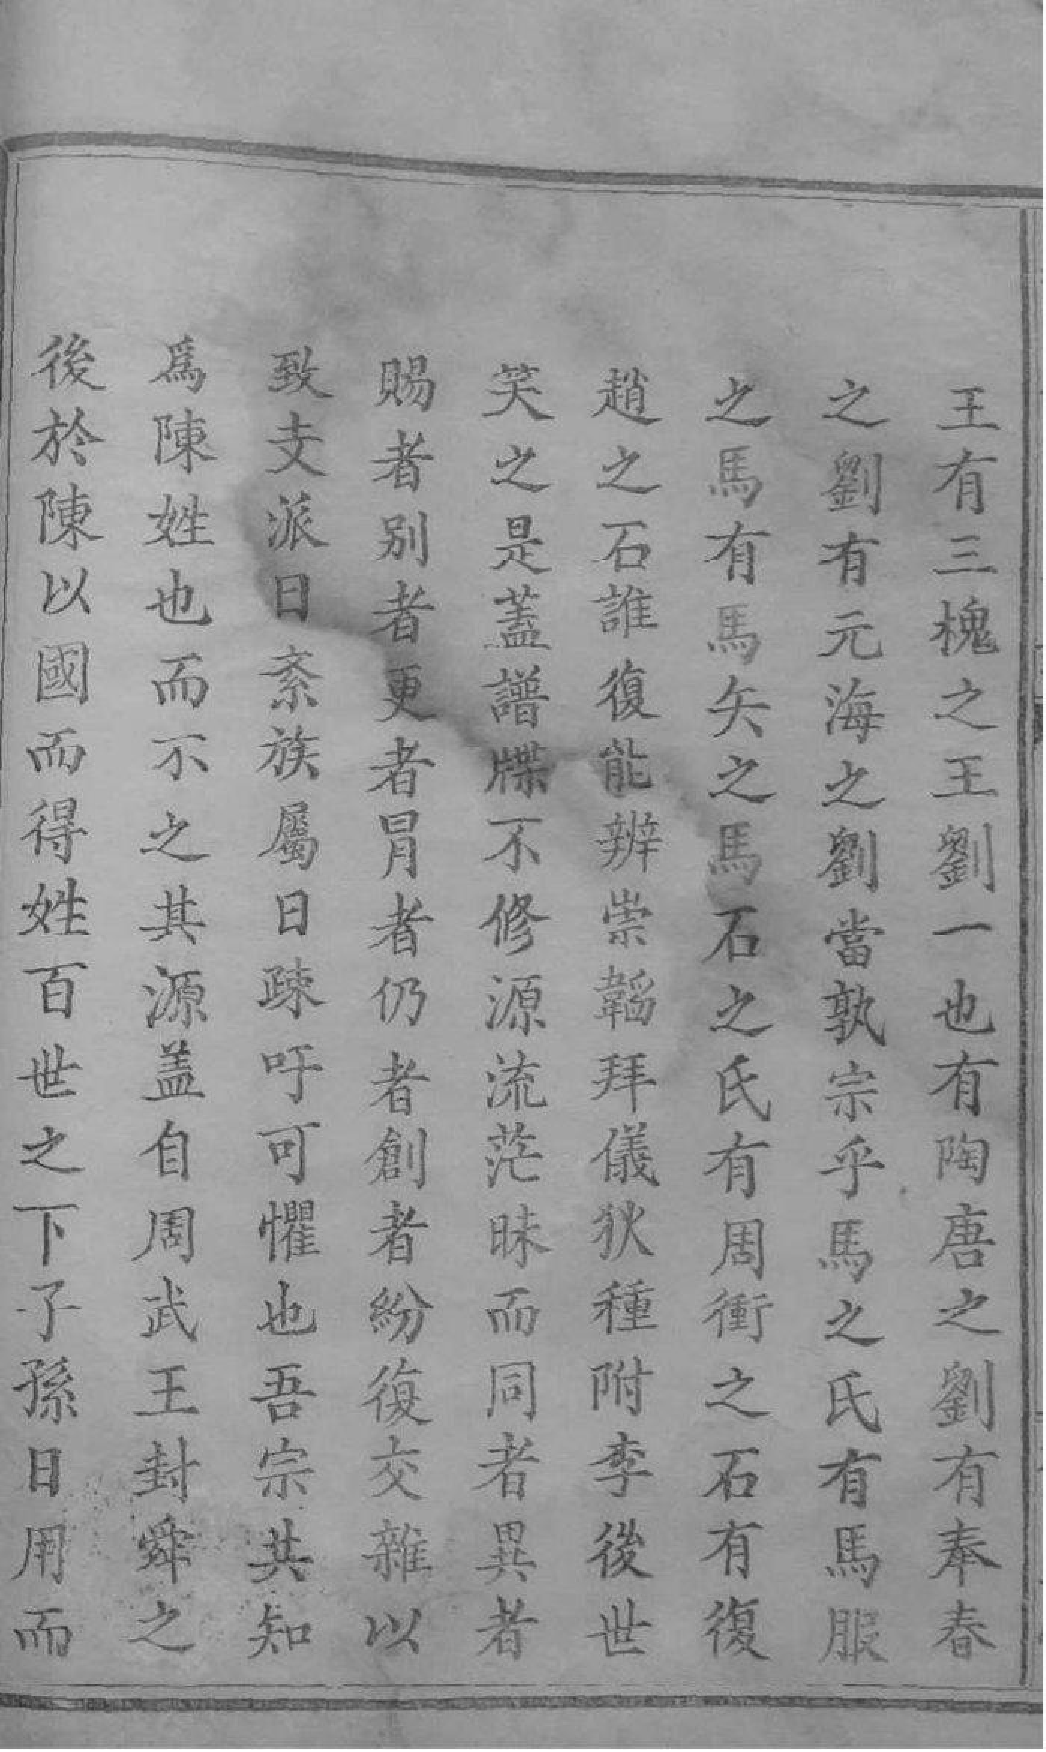 王有三槐之王劉一也有陶唐之劉有奉春
之劉有元海之劉當孰宗乎馬之氏有馬服
之馬有馬矢之馬石之氏有周衝之石有復
趙之石誰復能辨崇韜拜儀狄種附李後世
笑之是蓋譜牒不修源流茫昧而同者異者
賜者別者更者冐者仍者創者紛復交雜以
致支派日紊族屬日疎吁可懼也吾宗共知
爲陳姓也而不之其源盖自周武王封舜之
後於陳以國而得姓百世之下子孫日用而